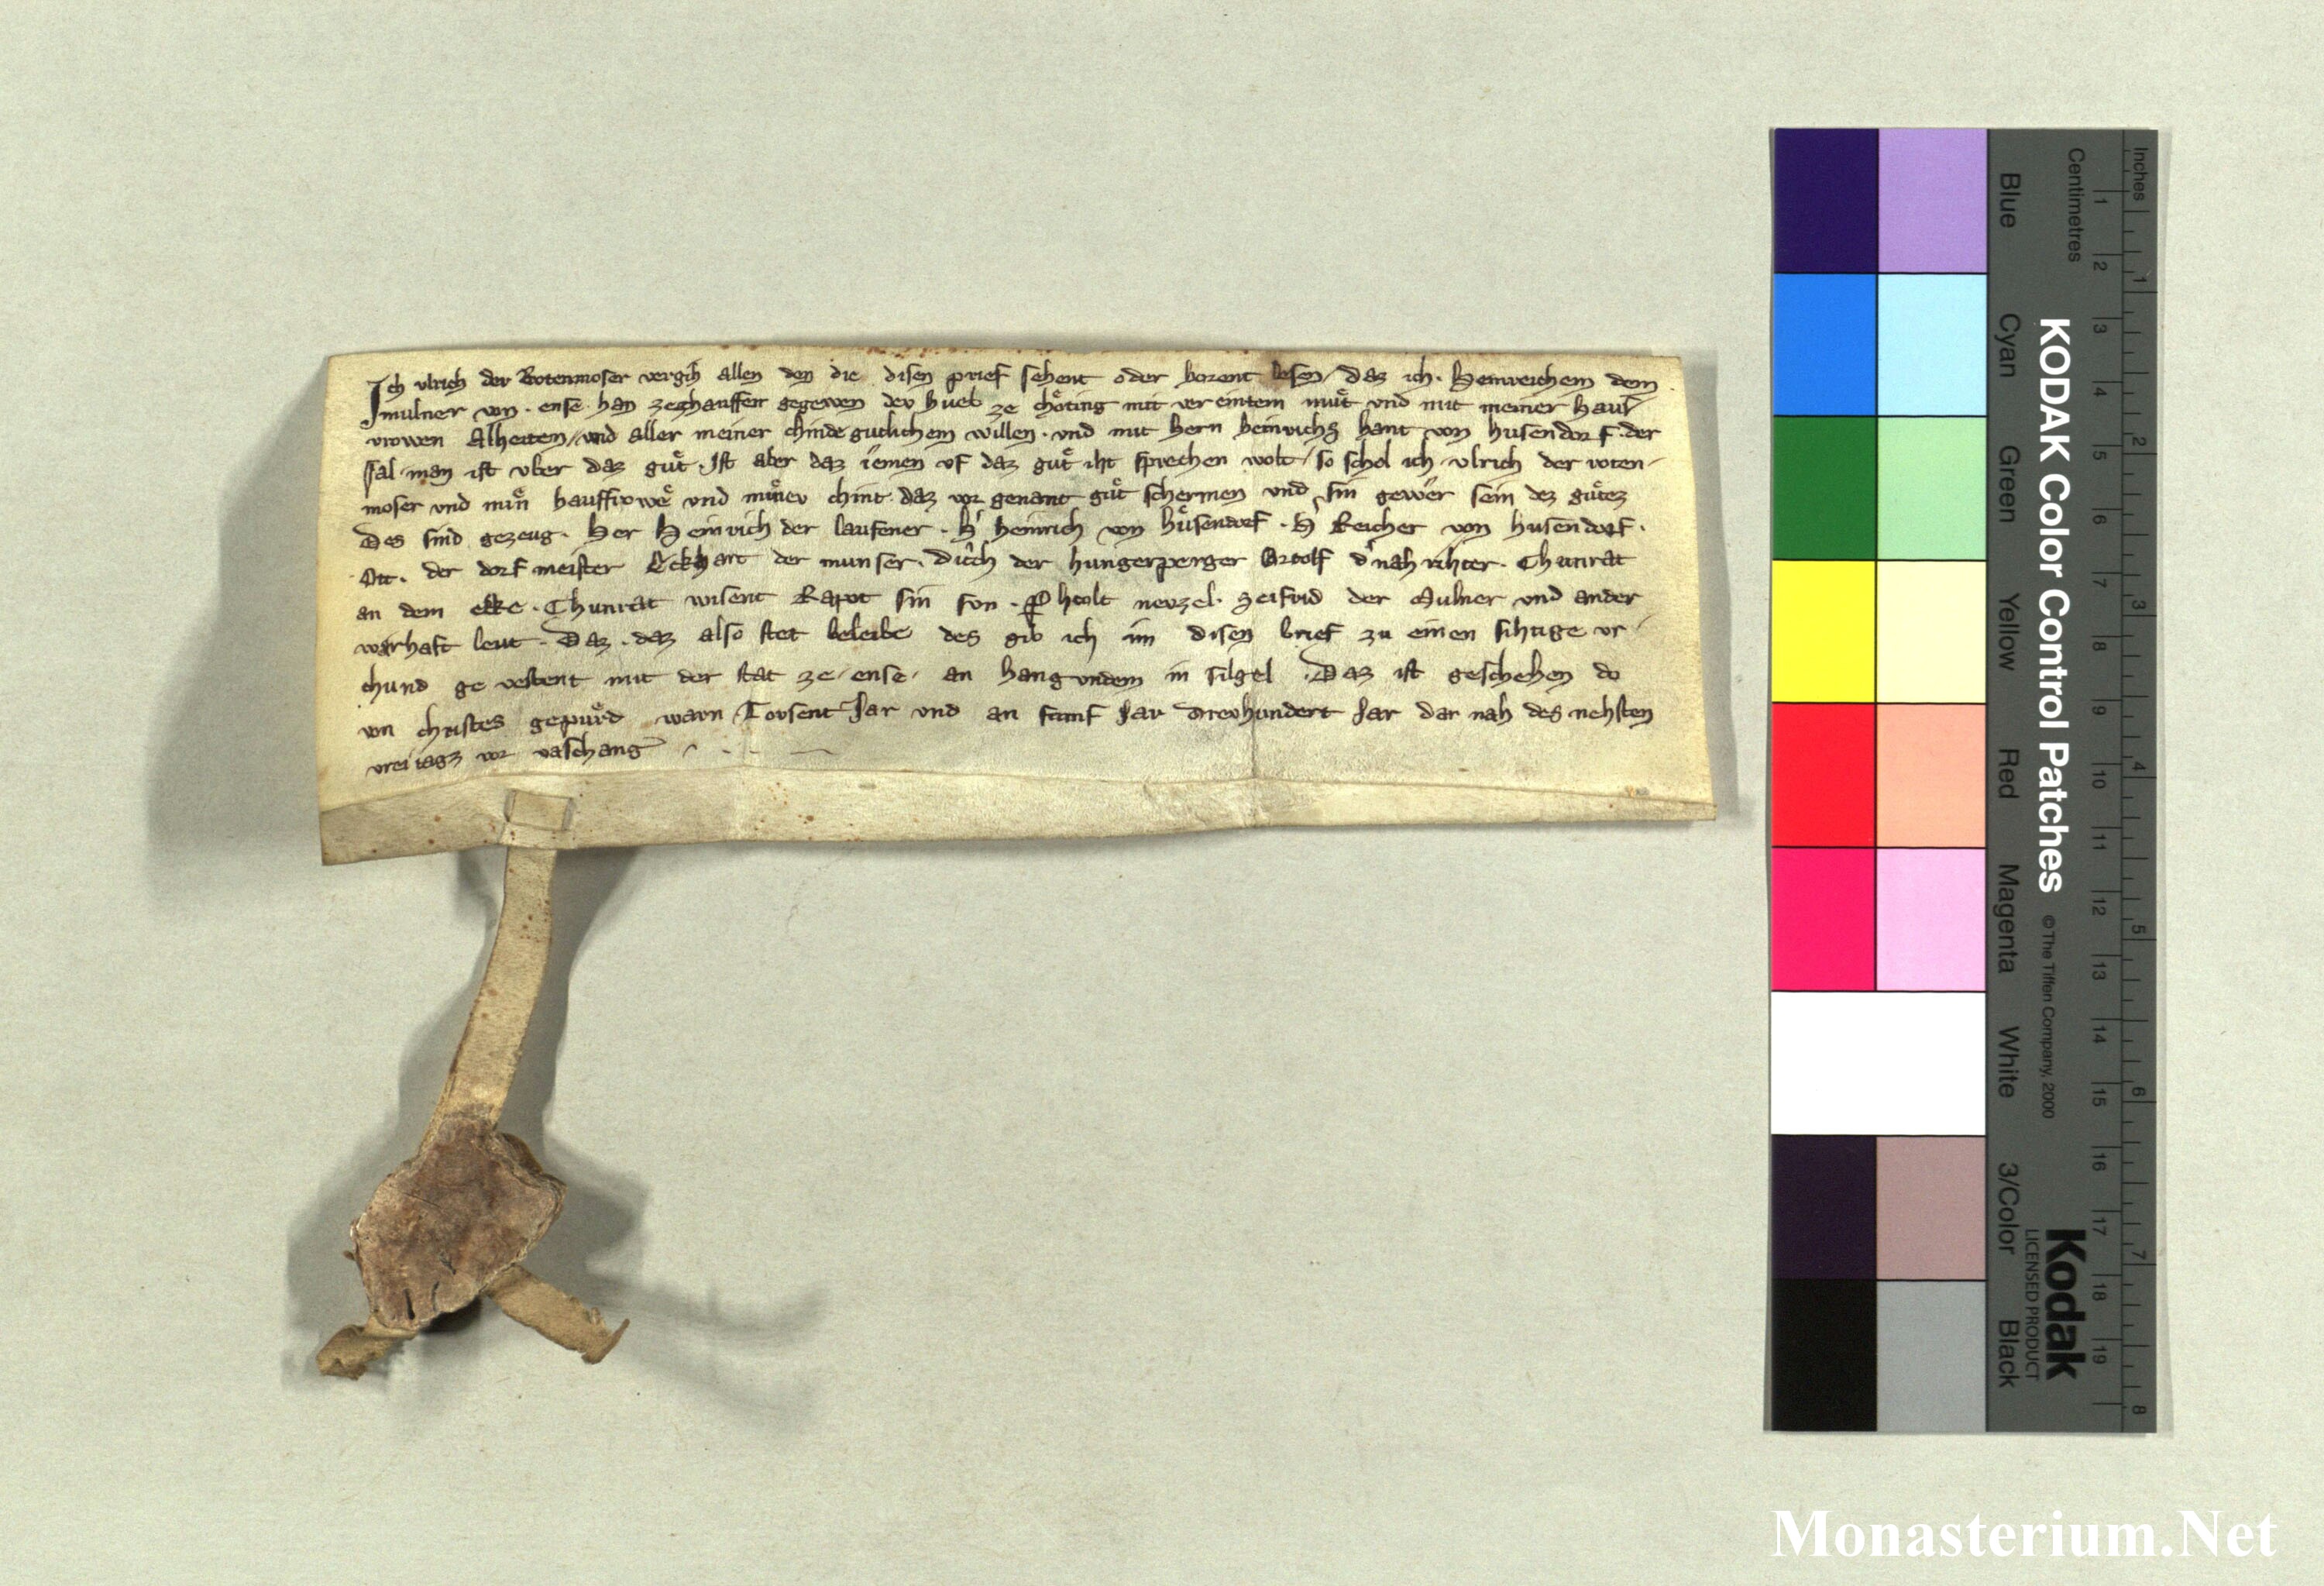 Ich vlrich der Rotenmoser vergih allen den die disen prief sehent oder horent lesen / daz ich · Heinreichem dem
mulner von · ense · han zechauffen gegewen dev hueb ze chöting mit vereintem muͤt vnd mit meiner haus
vrowen Alheiten / vnd aller meiner chinde gutlichem willen · vnd mit hern heinrichs hant von husendorf · der
sal man ist vber daz guͤt · Ist aber daz iemen vf daz guͤt iht sprechen wolt / so schol ich · vlrich der roten-
moser vnd min hausfrowe vnd minev chint · daz vor genant guͤt schermen vnd sin gewer sein dez guͤtez
Des sind gezeug · Her Heinrich der laufener · H' heinrich von huͤsendorf · H' Reicher von husendorf ·
Ott · der dorf meister Eckhart der munser · der hungerperger Ortolf d' nah rihter · Chunrat
an dem ekke · Chunrat wisent Rapot sin son · neuzel · seifrid der Mulner vnd ander
warhaft leut · Daz · daz also stet beleibe des gib ich im disen brief zu einen sihtige vr-
chund ge vestent mit der stat ze / ense / an hangundem in sigel · Daz ist geschehen do
von christes gepuͤrd warn Tousent Jar vnd an funf Jar dreuhundert Jar dar nah des nehsten
vreitags vor vaschang
KODAK Color Control Patches
© The Tiffen Company, 2000
Kodak
LICENSED PRODUCT
Blue Cyan Green Yellow Red Magenta White 3/Color Black
Inches 1 2 3 4 5 6 7 8
Centimetres 1 2 3 4 5 6 7 8 9 10 11 12 13 14 15 16 17 18 19
Monasterium.Net